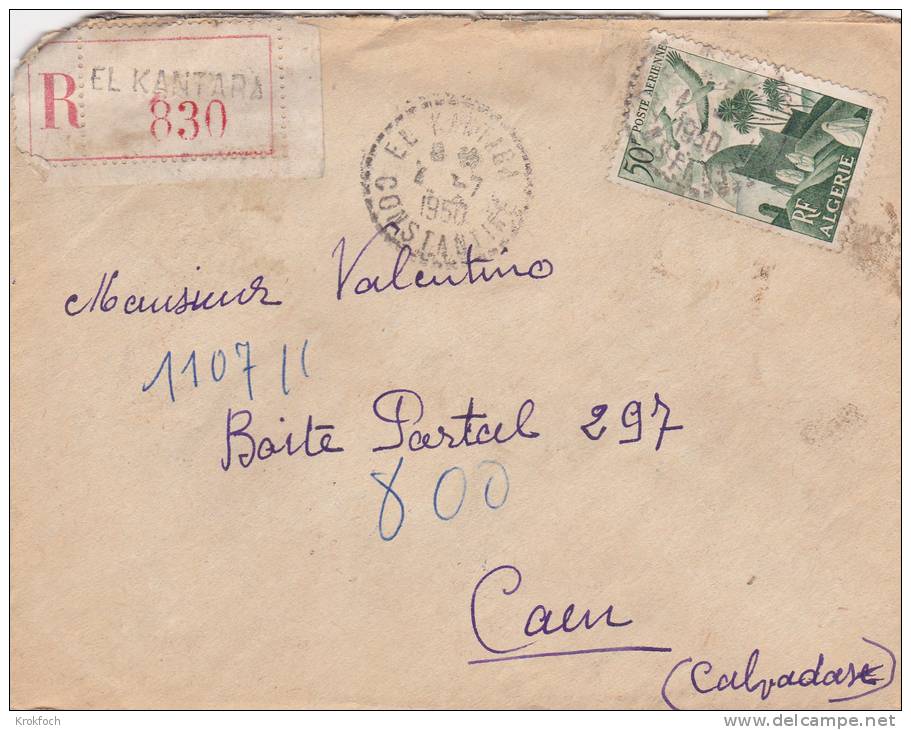 R EL KANTARA
830
EL KANTARA
1950
CONSTANTINE
50F POSTE AERIENNE
1950
RF
ALGERIE
Monsieur Valentino
1107 //
Boite Postal 297
800
Caen
(Calvados)
Krokfoch
www.delcampe.net